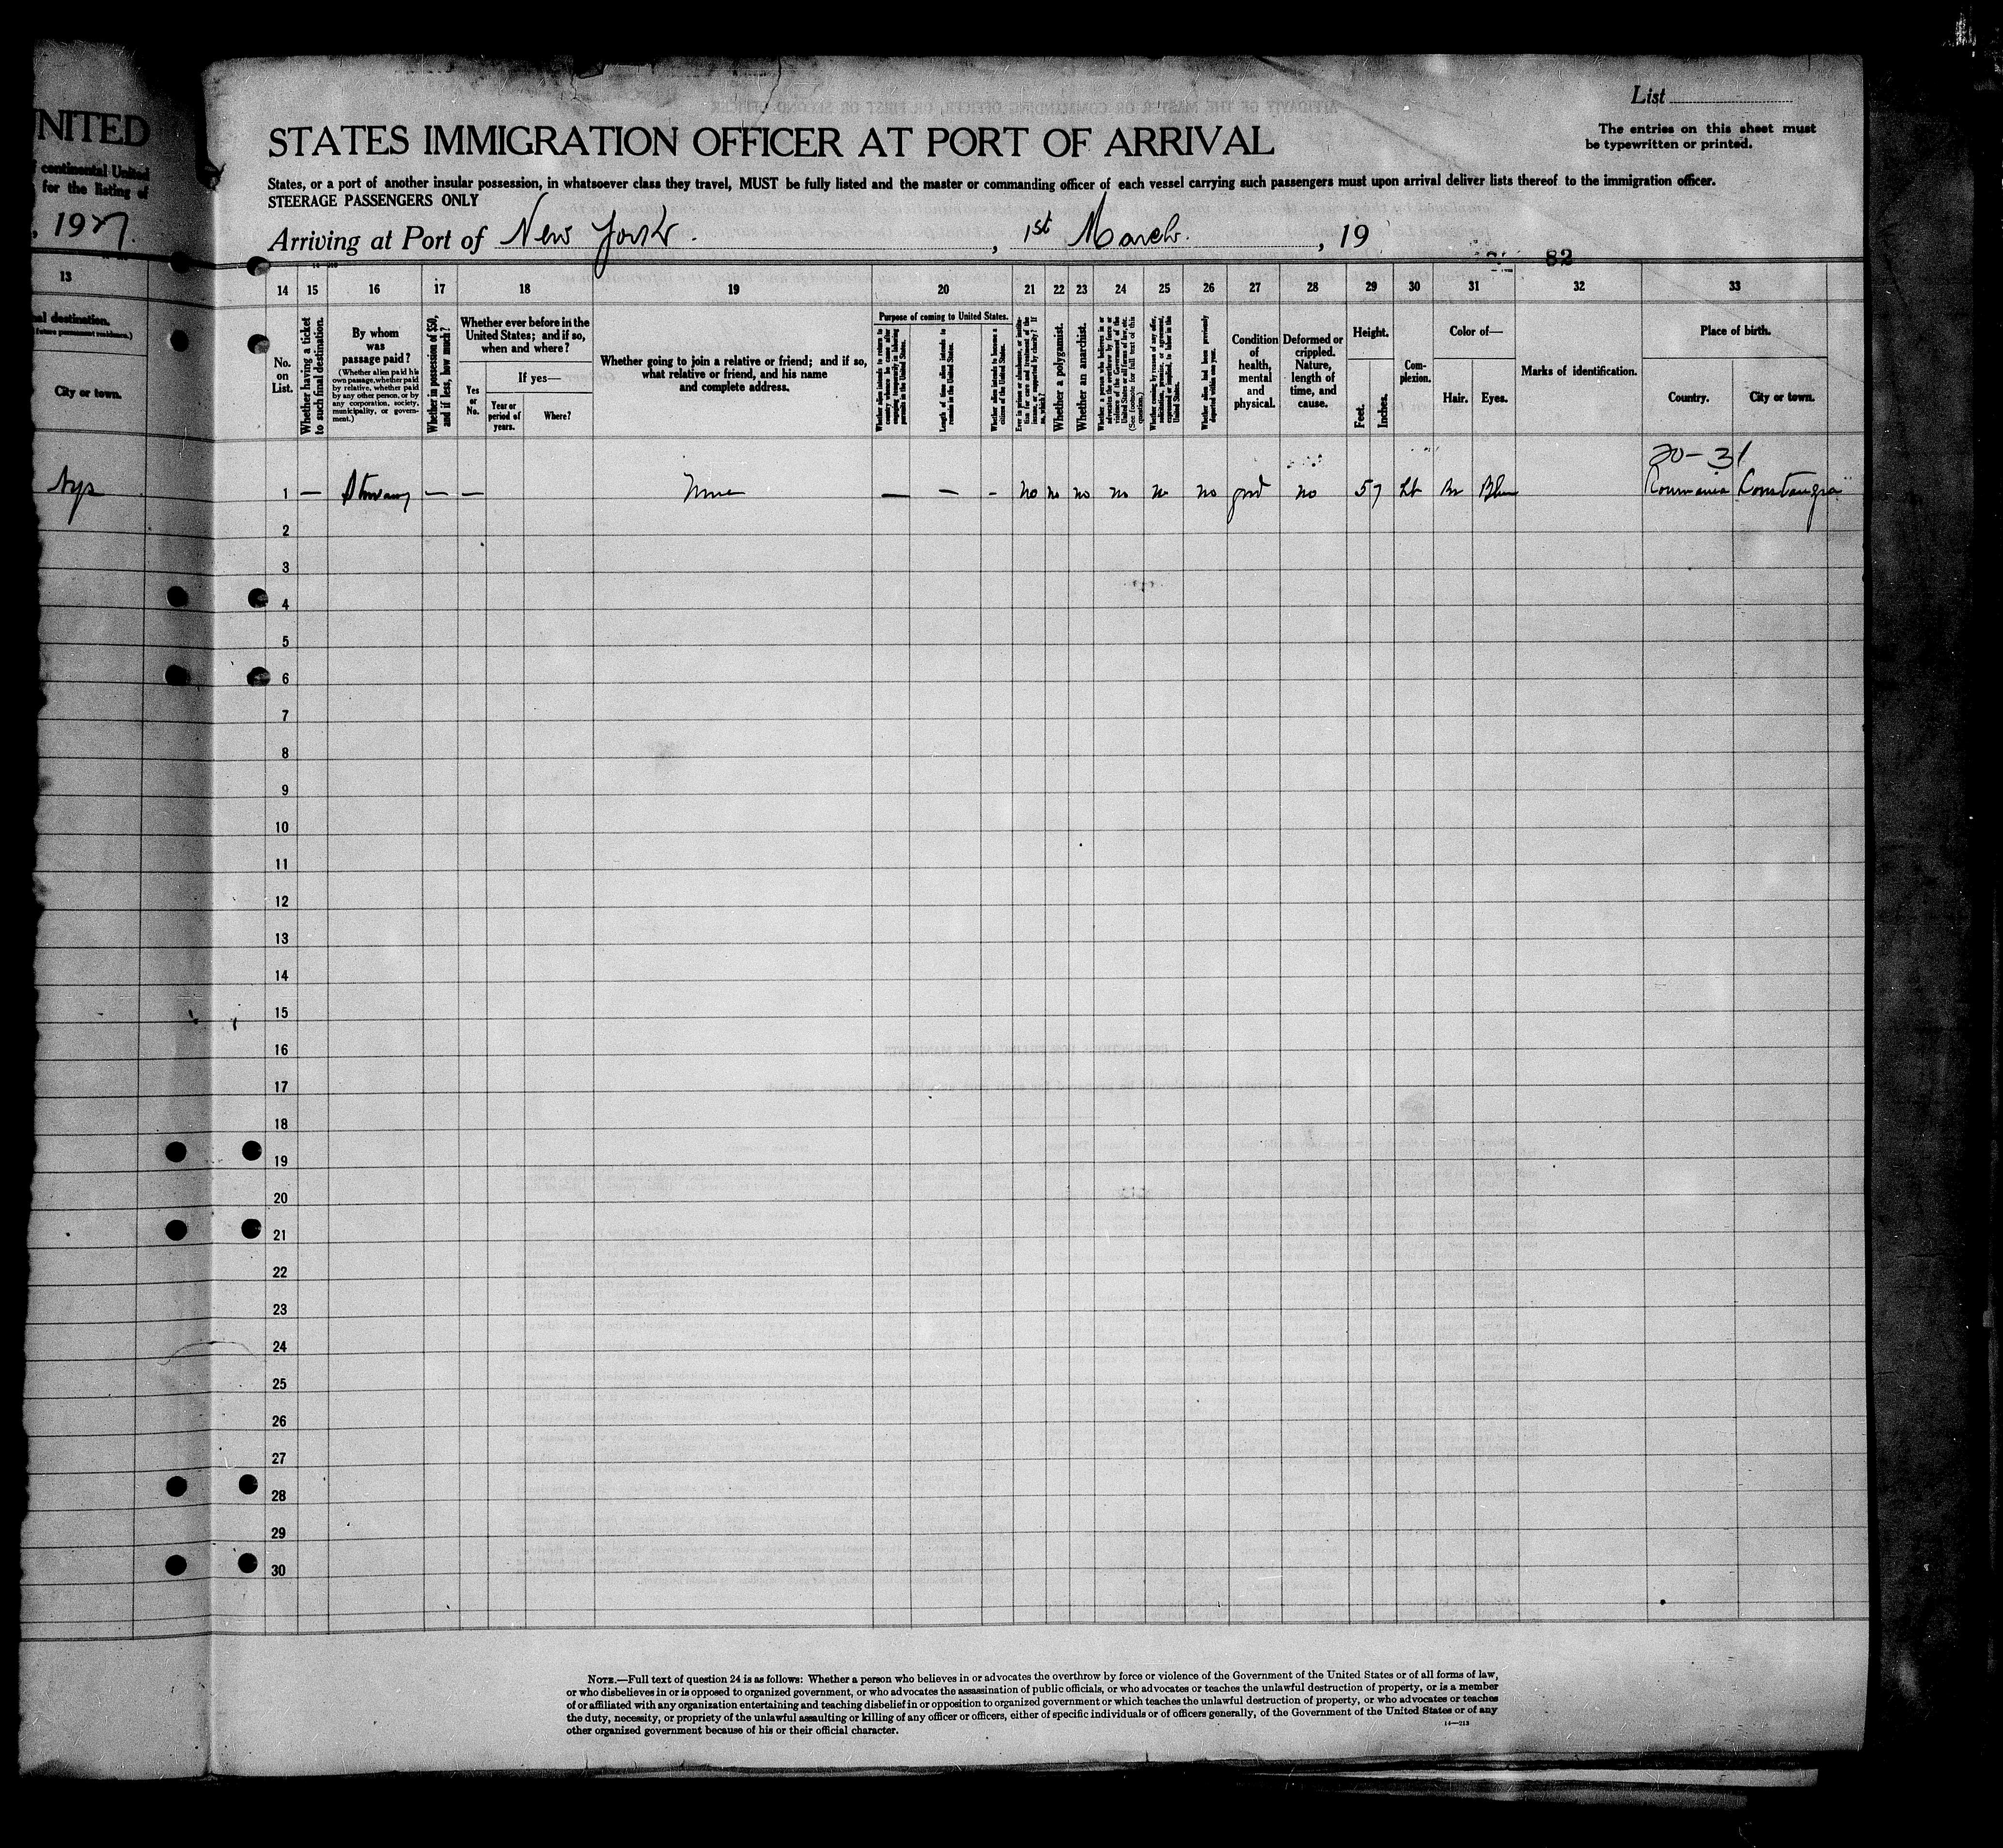 NITED
continental United
for the listing of
, 1927.
13
al destination.
future permanent residence.)
City or town.
nyc
List
The entries on this sheet must
be typewritten or printed.
STATES IMMIGRATION OFFICER AT PORT OF ARRIVAL
States, or a port of another insular possession, in whatsoever class they travel, MUST be fully listed and the master or commanding officer of each vessel carrying such passengers must upon arrival deliver lists thereof to the immigration officer.
STEERAGE PASSENGERS ONLY
Arriving at Port of New York. , 1st March. , 19
82
14 15 16 17 18 19 20 21 22 23 24 25 26 27 28 29 30 31 32 33
No. on List.
Whether having a ticket to such final destination.
By whom was passage paid?
(Whether alien paid his own passage, whether paid by relative, whether paid by any other person, or by any corporation, society, municipality, or government.)
Whether in possession of $50, and if less, how much?
Whether ever before in the United States; and if so, when and where?
Yes or No.
If yes—
Year or period of years.
Where?
Whether going to join a relative or friend; and if so, what relative or friend, and his name and complete address.
Purpose of coming to United States.
Whether alien intends to return to country whence he came after engaging temporarily in laboring pursuits in the United States.
Length of time alien intends to remain in the United States.
Whether alien intends to become a citizen of the United States.
Ever in prison or almshouse, or institution for care and treatment of the insane, or supported by charity? If so, which?
Whether a polygamist.
Whether an anarchist.
Whether a person who believes in or advocates the overthrow by force or violence of the Government of the United States or all forms of law, etc. (See footnote for full text of this question.)
Whether coming by reason of any offer, solicitation, promise, or agreement, expressed or implied, to labor in the United States.
Whether alien had been previously deported within one year.
Condition of health, mental and physical.
Deformed or crippled. Nature, length of time, and cause.
Height.
Feet. Inches.
Complexion.
Color of—
Hair. Eyes.
Marks of identification.
Place of birth.
Country. City or town.
20-31
1 — Stowaway — — None — — - no no no no no no good no 5 7 Lt Br Blue Roumania Constanza
2
3
4
5
6
7
8
9
10
11
12
13
14
15
16
17
18
19
20
21
22
23
24
25
26
27
28
29
30
NOTE.—Full text of question 24 is as follows: Whether a person who believes in or advocates the overthrow by force or violence of the Government of the United States or of all forms of law,
or who disbelieves in or is opposed to organized government, or who advocates the assassination of public officials, or who advocates or teaches the unlawful destruction of property, or is a member
of or affiliated with any organization entertaining and teaching disbelief in or opposition to organized government or which teaches the unlawful destruction of property, or who advocates or teaches
the duty, necessity, or propriety of the unlawful assaulting or killing of any officer or officers, either of specific individuals or of officers generally, of the Government of the United States or of any
other organized government because of his or their official character.
14—213